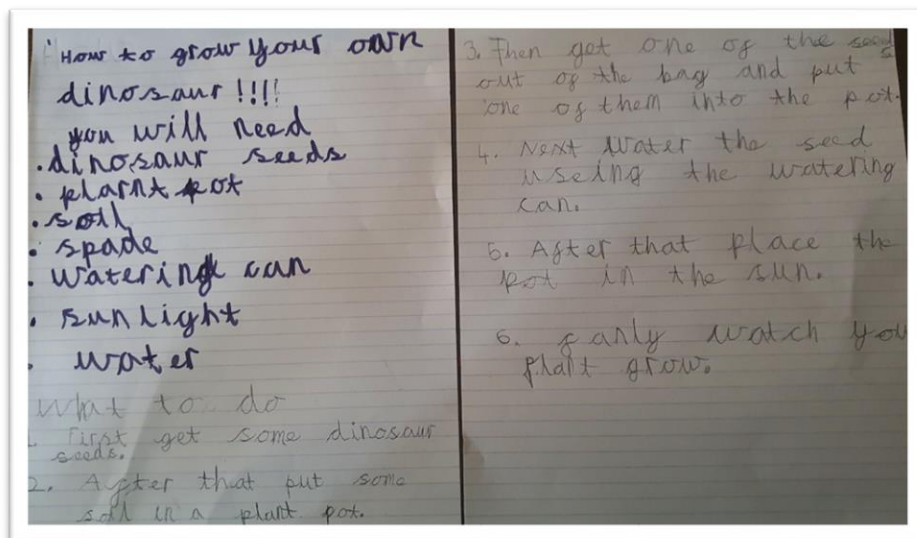 How to grow your own
dinosaur !!!!
you will need
• dinosaur seeds
• plarnt pot
• soil
• spade
• watering can
• sunlight
• water
What to do
1. First get some dinosaur
seeds.
2. After that put some
soil in a plant pot.
3. Then get one of the seeds
out of the bag and put
one of them into the pot.
4. Next water the seed
useing the watering
can.
5. After that place the
pot in the sun.
6. fanly watch you
plant grow.